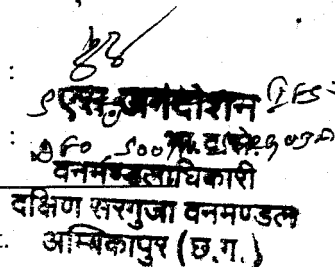 एस. जगदीशन IFS
DFO South
वनमण्डलाधिकारी
दक्षिण सरगुजा वनमण्डल
अम्बिकापुर (छ.ग.)